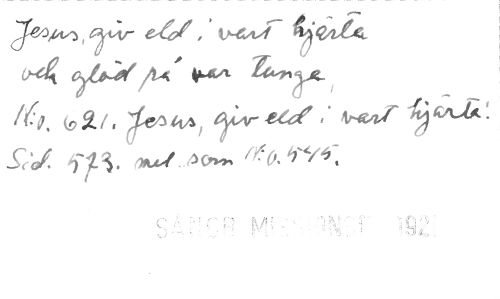 Jesus, giv eld i vart hjärta
och glöd på var tunga,
N:o. 621. Jesus, giv eld i vart hjärta!
Sid. 573. mel som N:o. 545.
SÅNGR 192